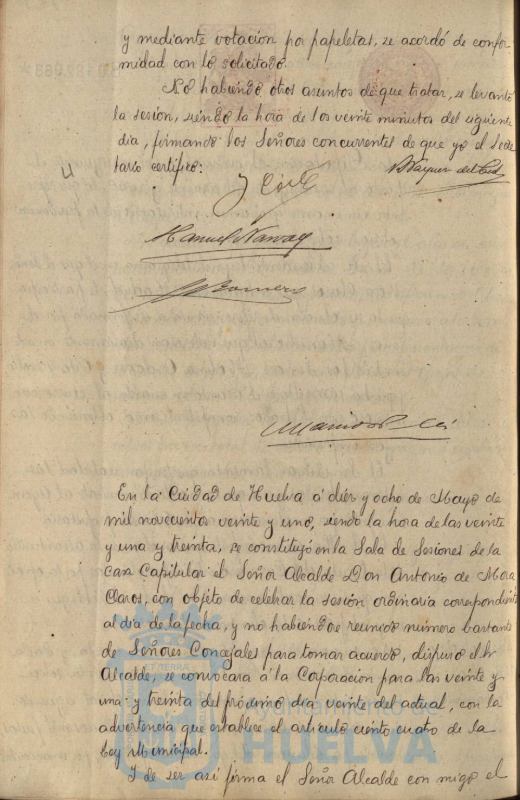 y mediante votación por papeletas, se acordó de confor-
midad con lo solicitado.
No habiendo otros asuntos de que tratar, se levantó
la sesión, siendo la hora de los veinte minutos del siguiente
día, firmando los Señores concurrentes de que yo el Secre
tario certifico:
Manuel Narvaez
En la Ciudad de Huelva á diez y ocho de Mayo de
mil novecientos veinte y uno, siendo la hora de las veinte
y una y treinta, se constituyó en la Sala de Sesiones de la
Casa Capitular el Señor Alcalde Don Antonio de Mora
Claros, con objeto de celebrar la sesión ordinaria correspondiente
al día de la fecha, y no habiendose reunido número bastante
de Señores Concejales para tomar acuerdo, dispuso el Sr
Alcalde, se convocara á la Corporación para las veinte y
una y treinta del próximo dia veinte del actual, con la
advertencia que establece el articulo ciento cuatro de la
Ley Municipal.
Y de ser así firma el Señor Alcalde con migo el
Ayuntamiento de
HUELVA